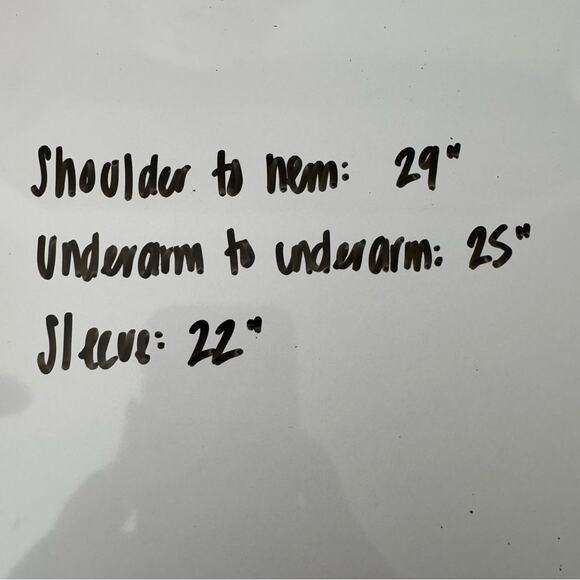 Shoulder to hem: 29"
Underarm to underarm: 25"
Sleeve: 22"